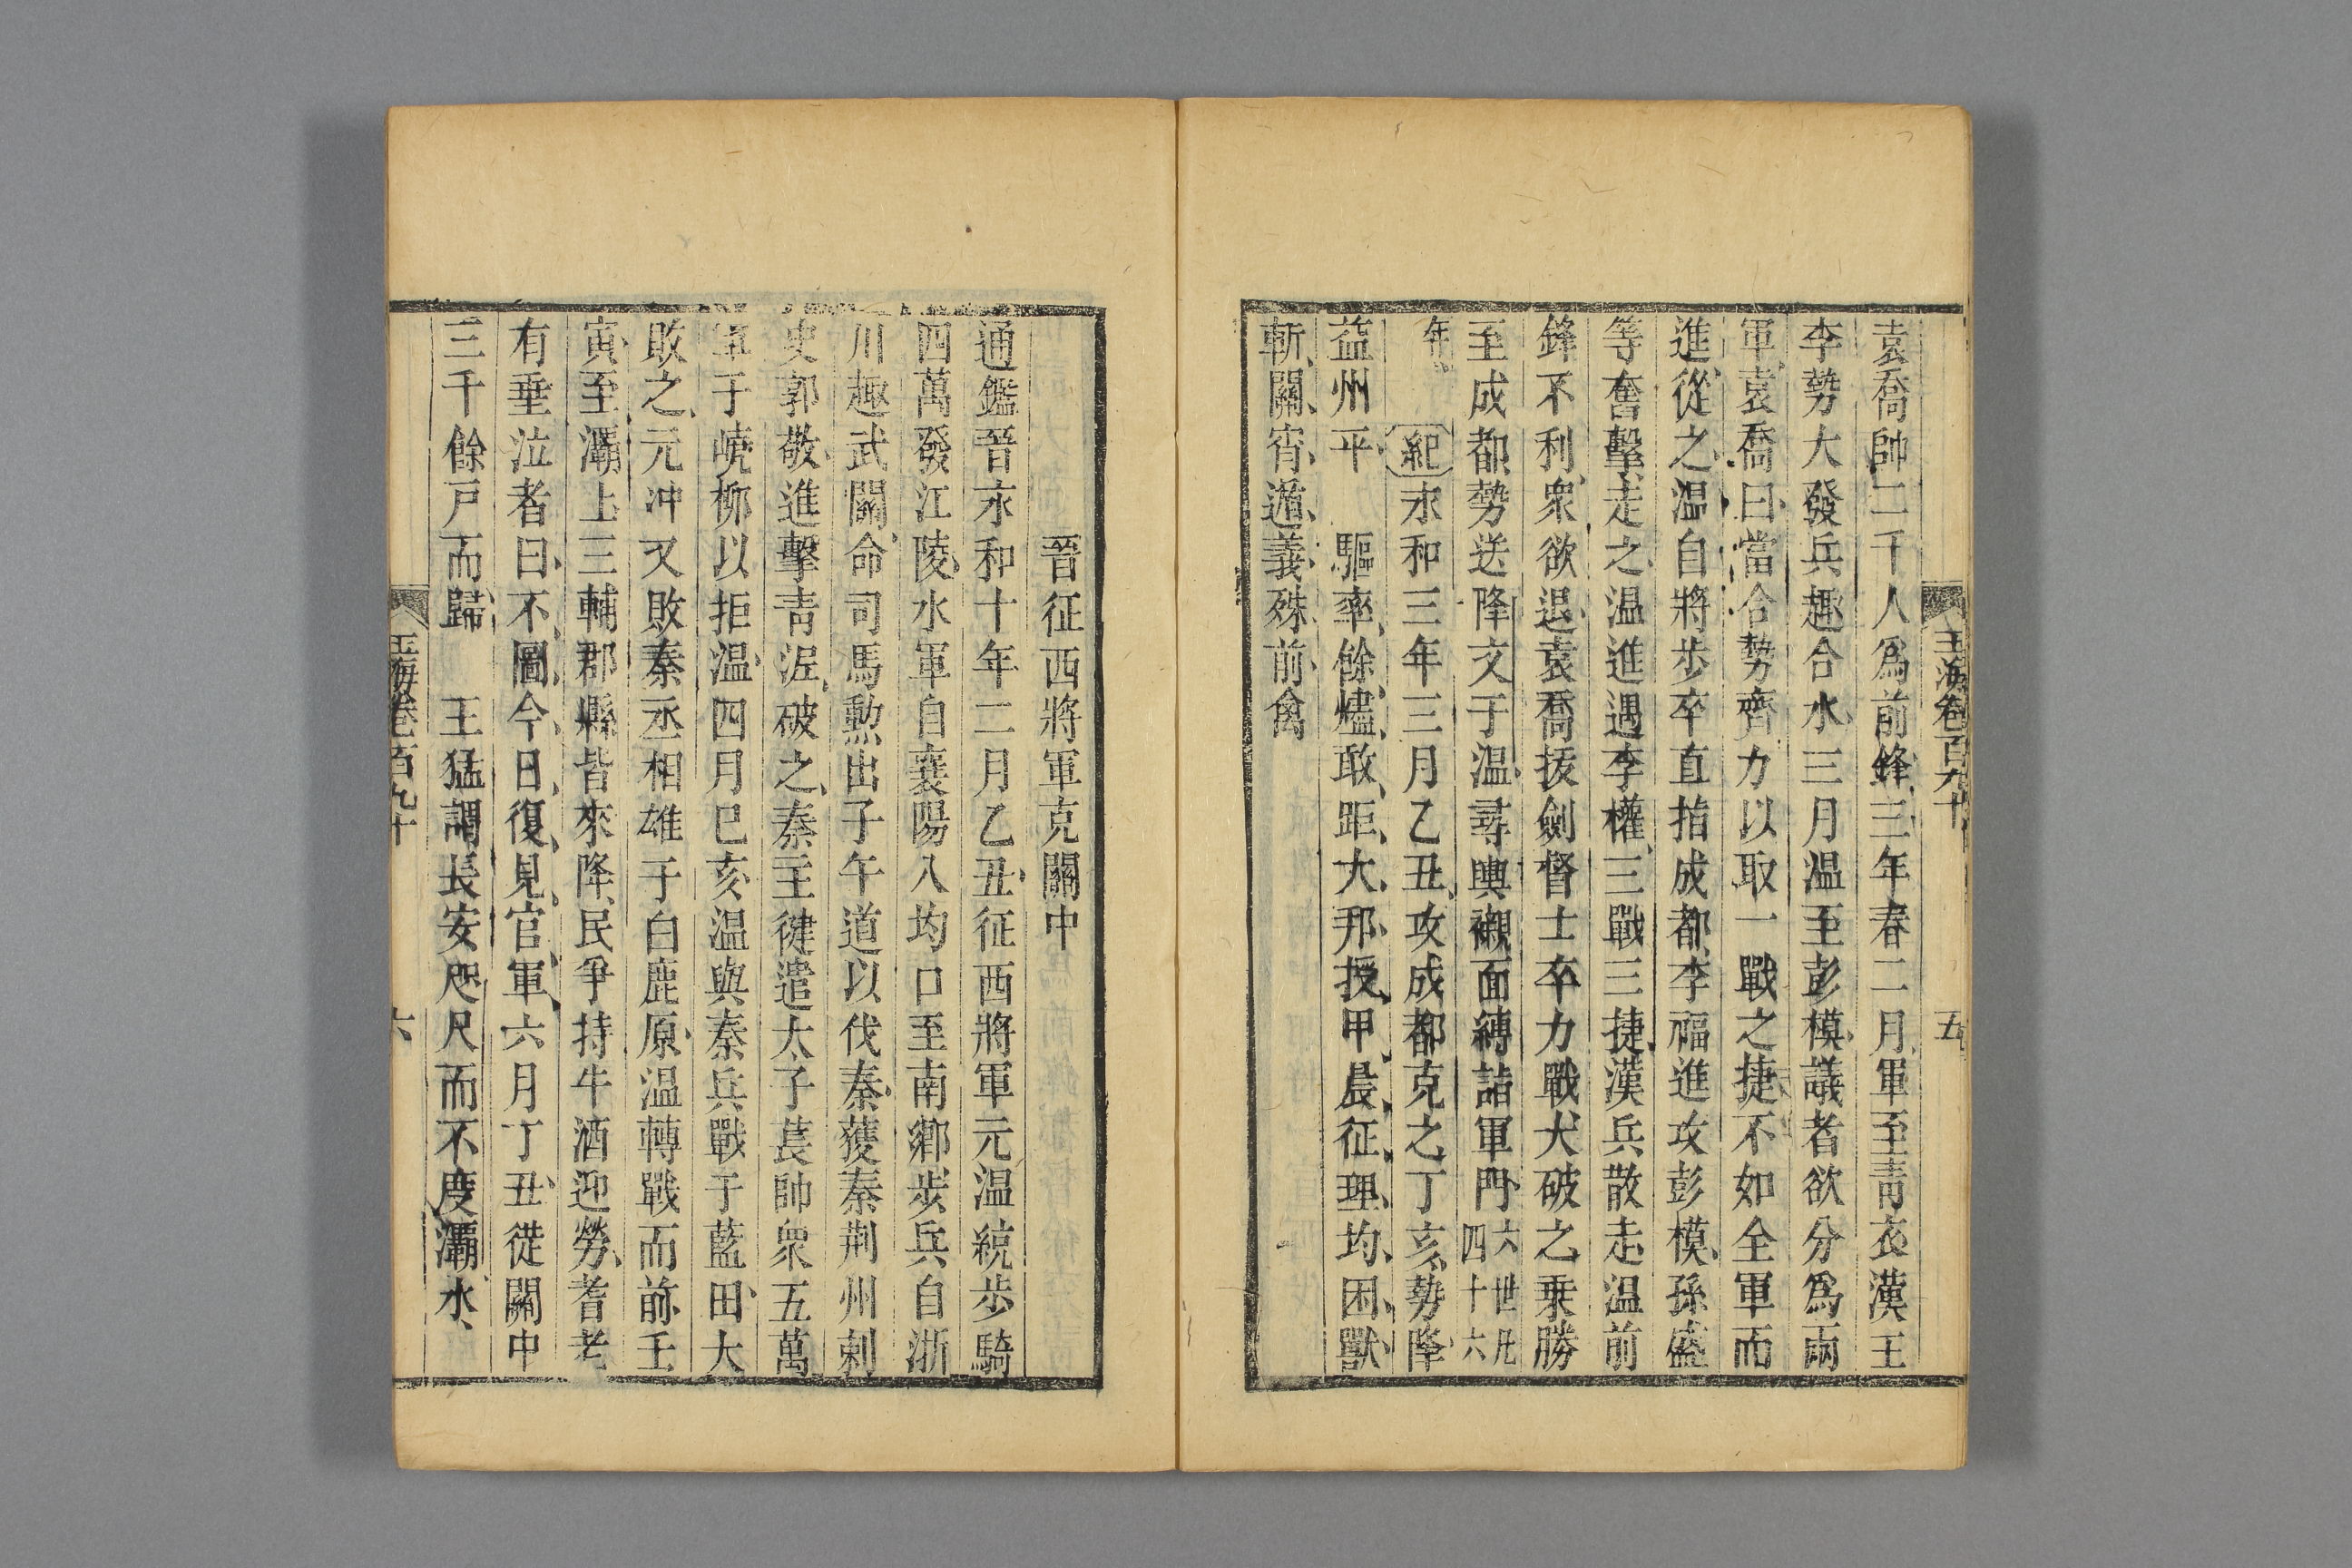 玉海卷百九十 五
袁喬帥二千人爲前鋒三年春二月軍至青衣漢王
李勢大發兵趣合水三月温至彭模議者欲分爲兩
軍袁喬曰當合勢齊力以取一戰之捷不如全軍而
進從之温自將步卒直指成都李福進攻彭模孫盛
等奮擊走之温進遇李權三戰三捷漢兵散走温前
鋒不利衆欲退袁喬拔劍督士卒力戰大破之乗勝
至成都勢送降文于温尋輿櫬面縛詣軍門六世凡四十六
年 紀永和三年三月乙丑攻成都克之丁亥勢降
益州平 驅率餘燼敢距大邦授甲晨征理均困獸
斬關宵遁義殊前禽
晉征西將軍克關中
通鑑晉永和十年二月乙丑征西將軍元温統步騎
四萬發江陵水軍自襄陽入均口至南鄉步兵自淅
川趣武關命司馬勲出子午道以伐秦獲秦荆州刺
史郭敬進擊青泥破之秦主健遣太子萇帥衆五萬
軍于嶢柳以拒温四月巳亥温與秦兵戰于藍田大
敗之元冲又敗秦丞相雄于白鹿原温轉戰而前壬
寅至灞上三輔郡縣皆來降民爭持牛酒迎勞耆老
有垂泣者曰不圖今日復見官軍六月丁丑徙關中
三千餘戸而歸 王猛謂長安咫尺而不度灞水
玉海卷百九十 六